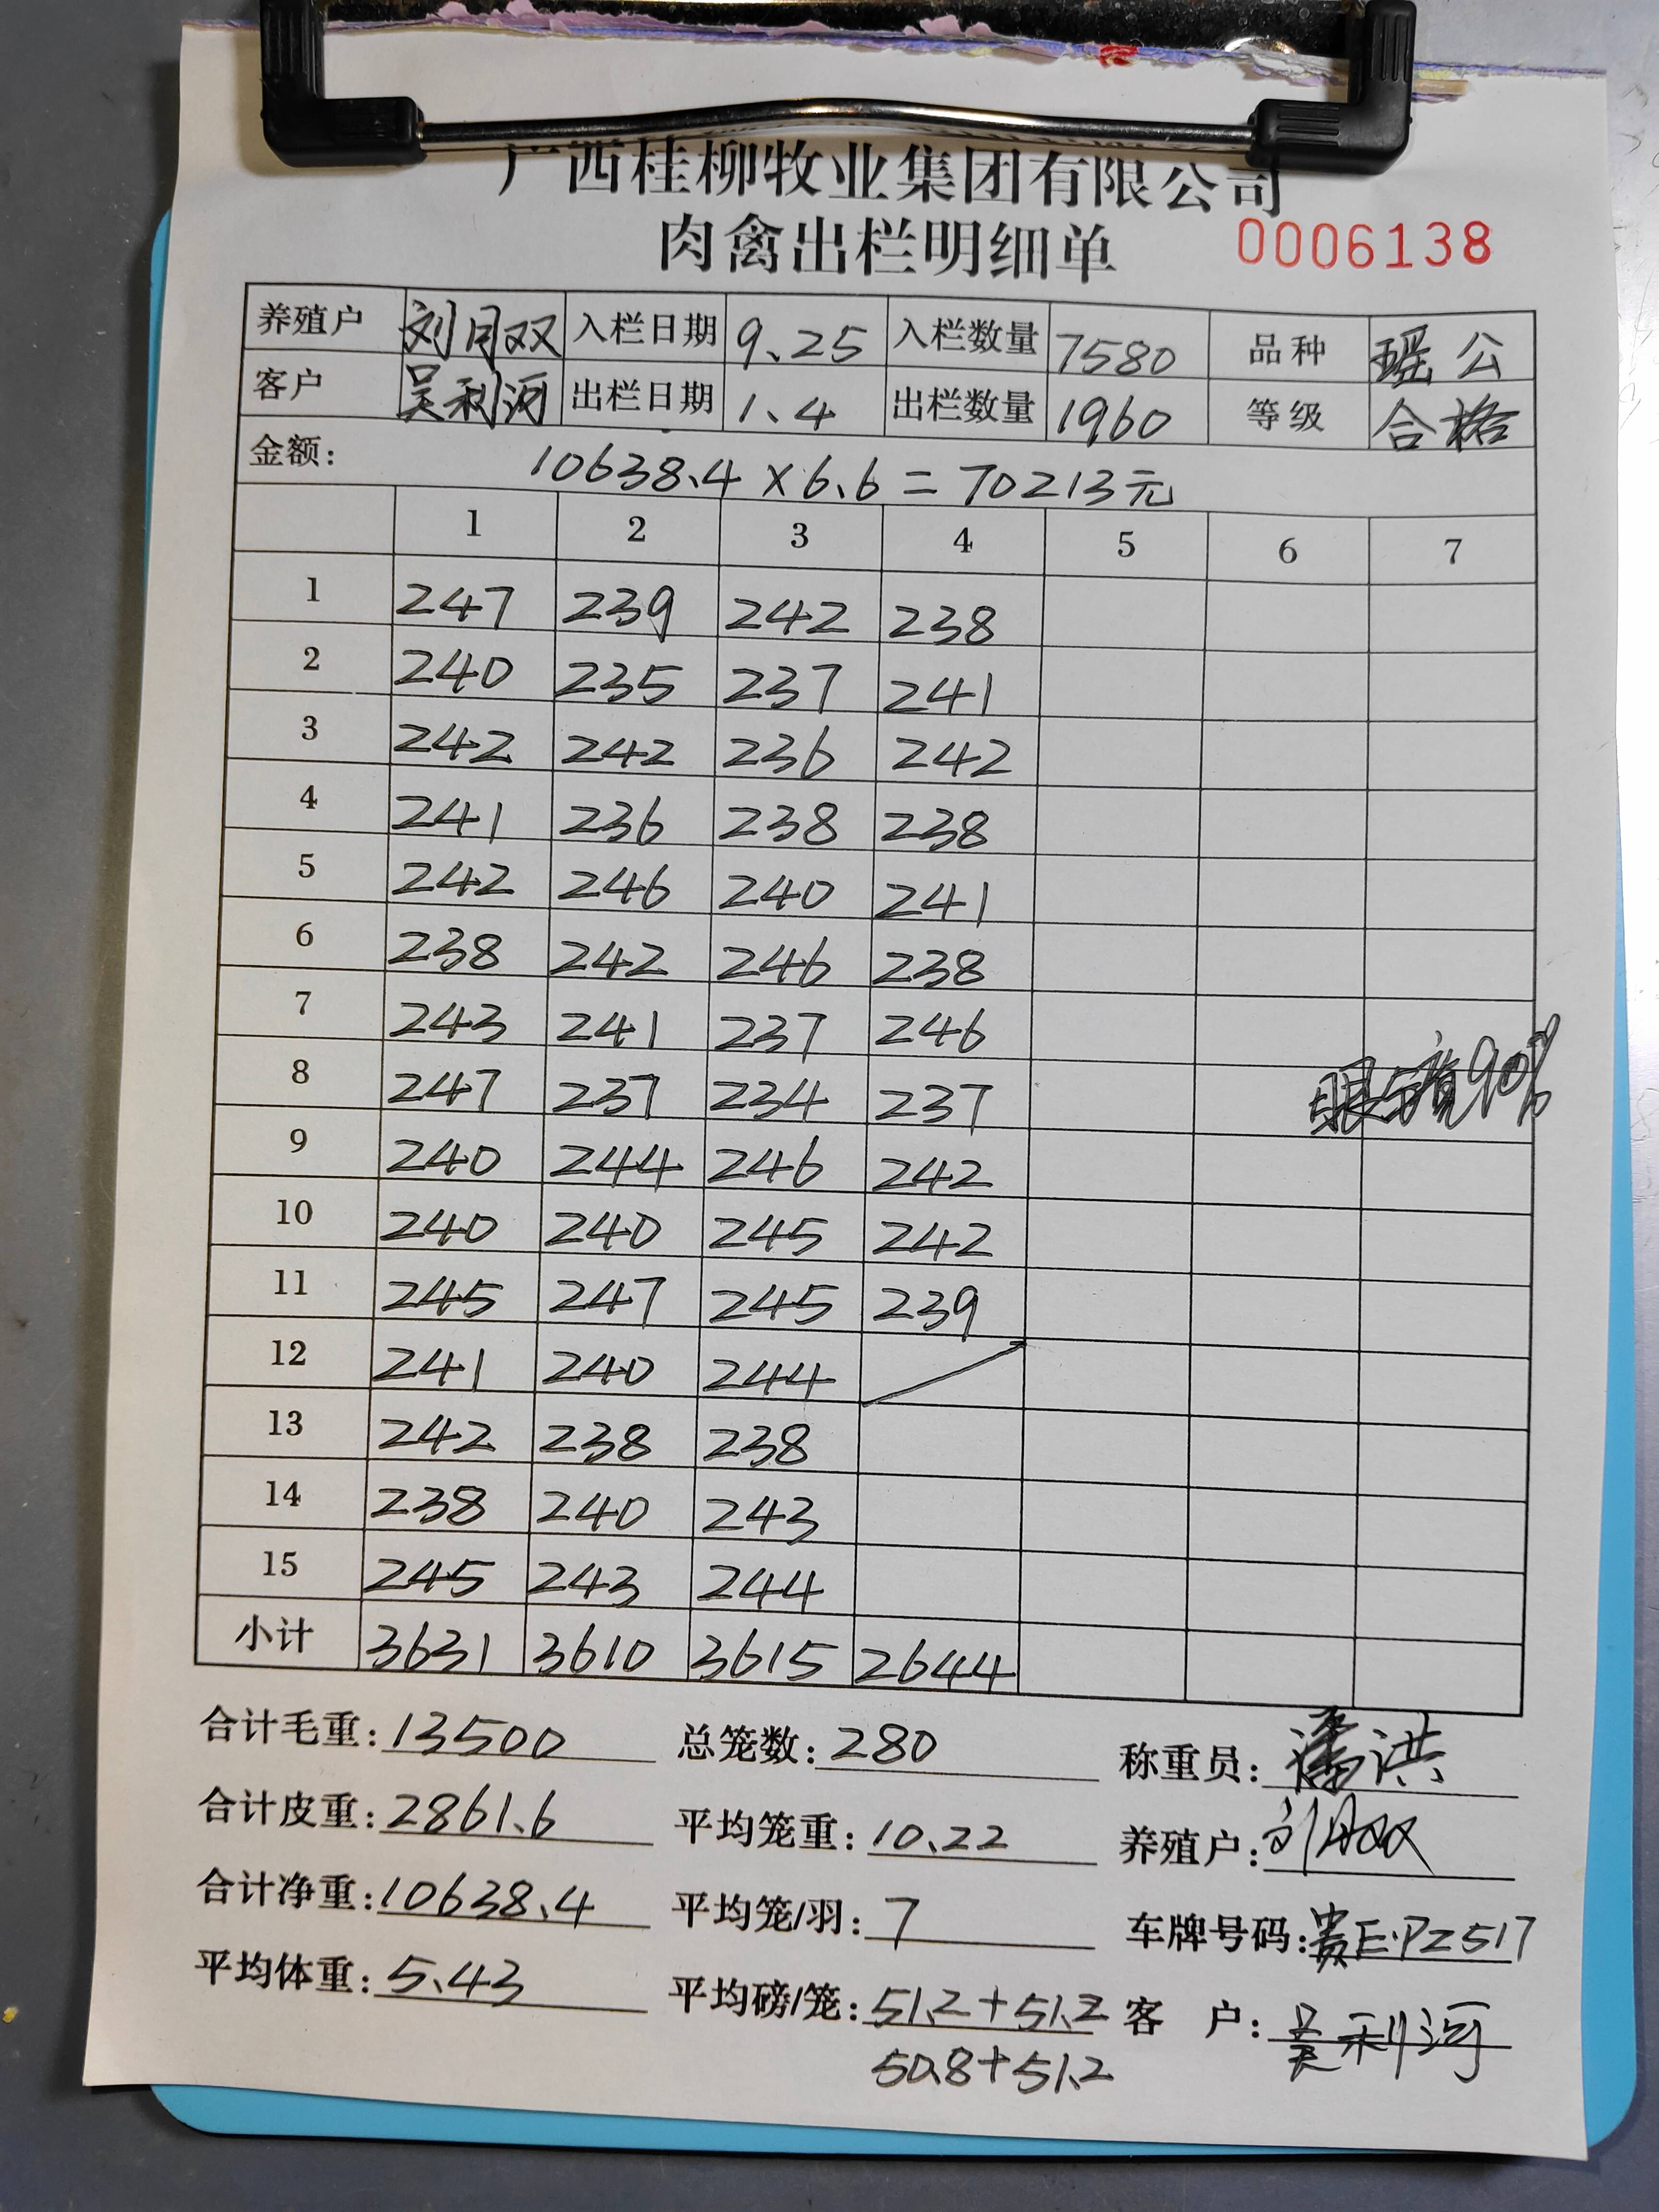 广西桂柳牧业集团有限公司
肉禽出栏明细单 0006138
养殖户 刘月双 入栏日期 9.25 入栏数量 7580 品种 瑶公
客户 吴利河 出栏日期 1.4 出栏数量 1960 等级 合格
金额: 10638.4×6.6=70213元
1 2 3 4 5 6 7
1 247 239 242 238
2 240 235 237 241
3 242 242 236 242
4 241 236 238 238
5 242 246 240 241
6 238 242 246 238
7 243 241 237 246
8 247 237 234 237 90%
9 240 244 246 242
10 240 240 245 242
11 245 247 245 239
12 241 240 244
13 242 238 238
14 238 240 243
15 245 243 244
小计 3631 3610 3615 2644
合计毛重:13500 总笼数:280 称重员:潘洪
合计皮重:2861.6 平均笼重:10.22 养殖户:刘月双
合计净重:10638.4 平均笼/羽:7 车牌号码:贵E·PZ517
平均体重:5.43 平均磅/笼:51.2+51.2 客 户:吴利河
50.8+51.2